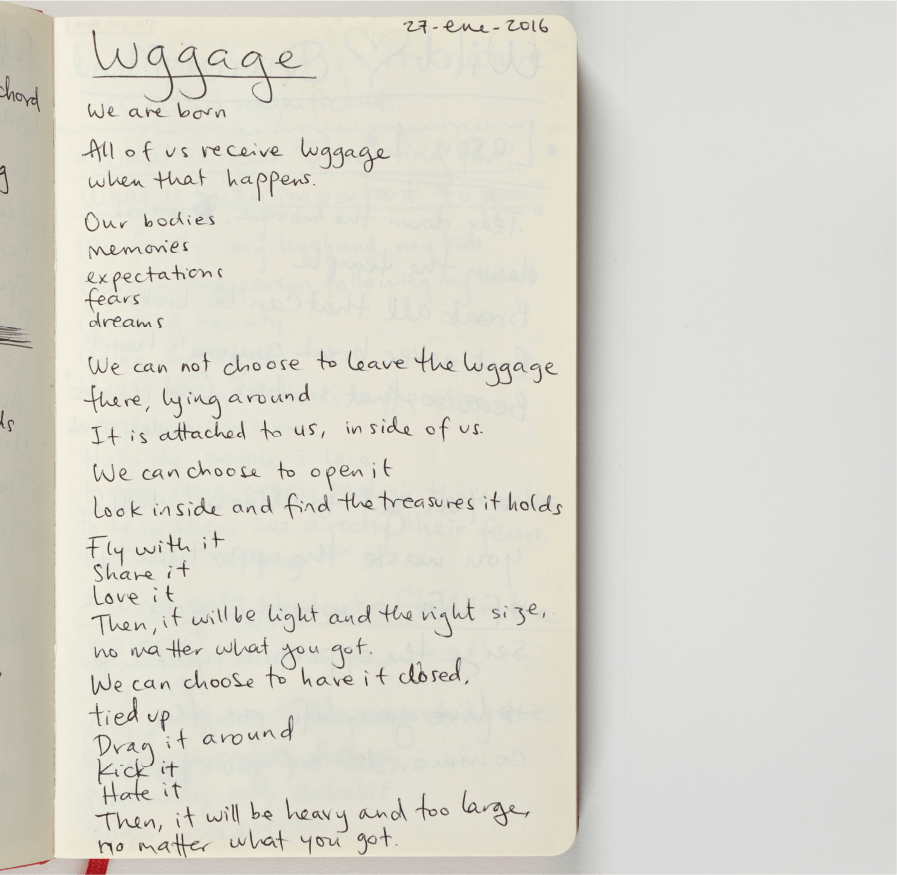 27-ene-2016
Luggage
chord
We are born
All of us receive luggage
when that happens.
Our bodies
memories
expectations
fears
dreams
We can not choose to leave the luggage
there, lying around
It is attached to us, inside of us.
We can choose to open it
Look inside and find the treasures it holds
Fly with it
Share it
Love it
Then, it will be light and the right size,
no matter what you got.
We can choose to have it closed,
tied up
Drag it around
Kick it
Hate it
Then, it will be heavy and too large,
no matter what you got.